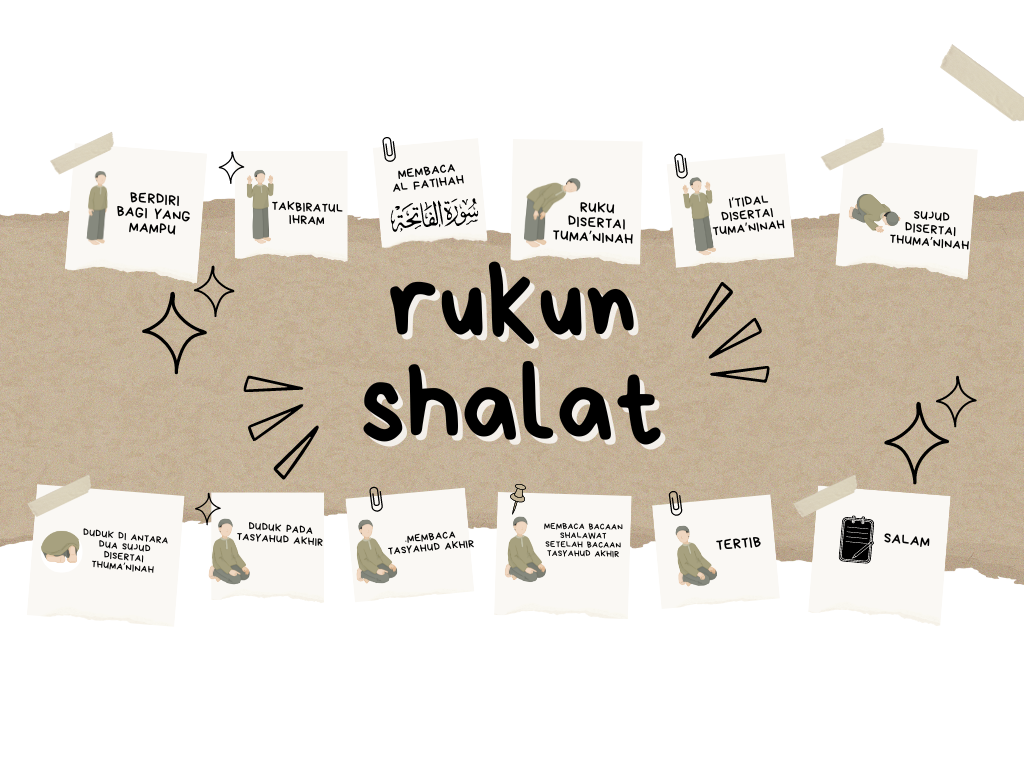 BERDIRI
BAGI YANG
MAMPU
TAKBIRATUL
IHRAM
MEMBACA
AL FATIHAH
سُورَةُ الفَاتِحَة
RUKU
DISERTAI
TUMA'NINAH
I'TIDAL
DISERTAI
TUMA'NINAH
SUJUD
DISERTAI
THUMA'NINAH
rukun
shalat
DUDUK DI ANTARA
DUA SUJUD
DISERTAI
THUMA'NINAH
DUDUK PADA
TASYAHUD AKHIR
.MEMBACA
TASYAHUD AKHIR
MEMBACA BACAAN
SHALAWAT
SETELAH BACAAN
TASYAHUD AKHIR
TERTIB
SALAM